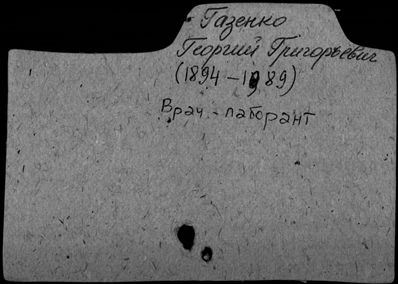 Газенко
Георгий Григорьевич
(1894-1989)
Врач-лаборант